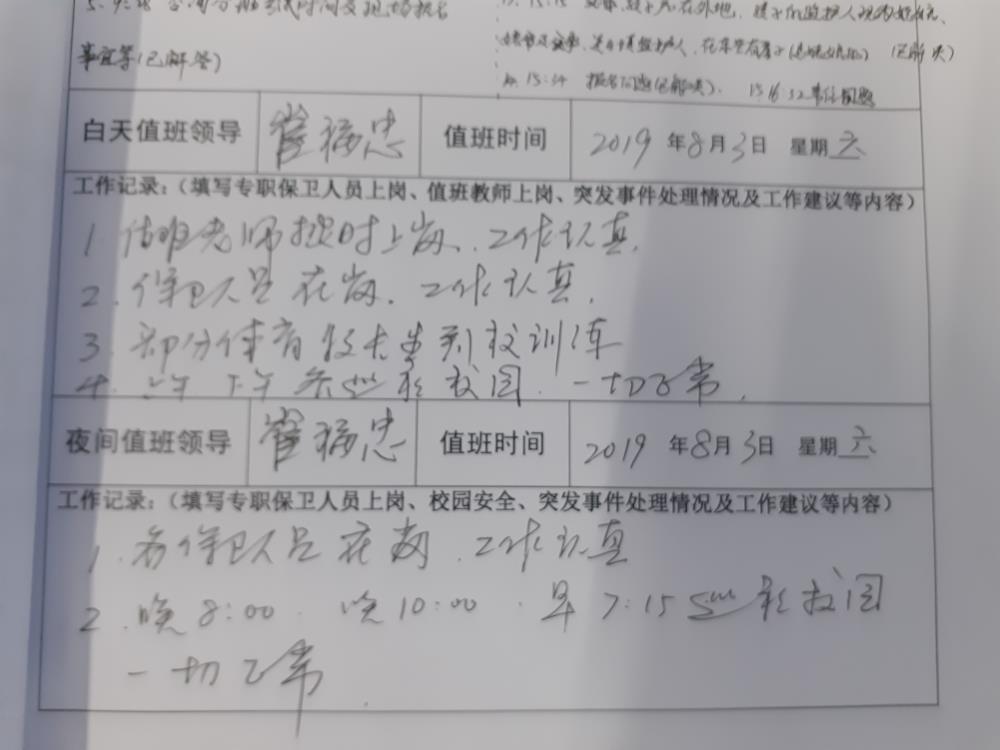 事宜等(已解答)
(已解决)
白天值班领导 管福忠 值班时间 2019年8月3日 星期六
工作记录:(填写专职保卫人员上岗、值班教师上岗、突发事件处理情况及工作建议等内容)
1. 值班老师按时上岗、工作认真.
2. 保卫人员在岗. 工作认真.
3. 部分体育特长生到校训练
4. 上午下午各巡视校园. 一切正常.
夜间值班领导 管福忠 值班时间 2019年8月3日 星期六
工作记录:(填写专职保卫人员上岗、校园安全、突发事件处理情况及工作建议等内容)
1. 各保卫人员在岗. 工作认真
2. 晚8:00. 晚10:00. 早7:15巡视校园
一切正常.